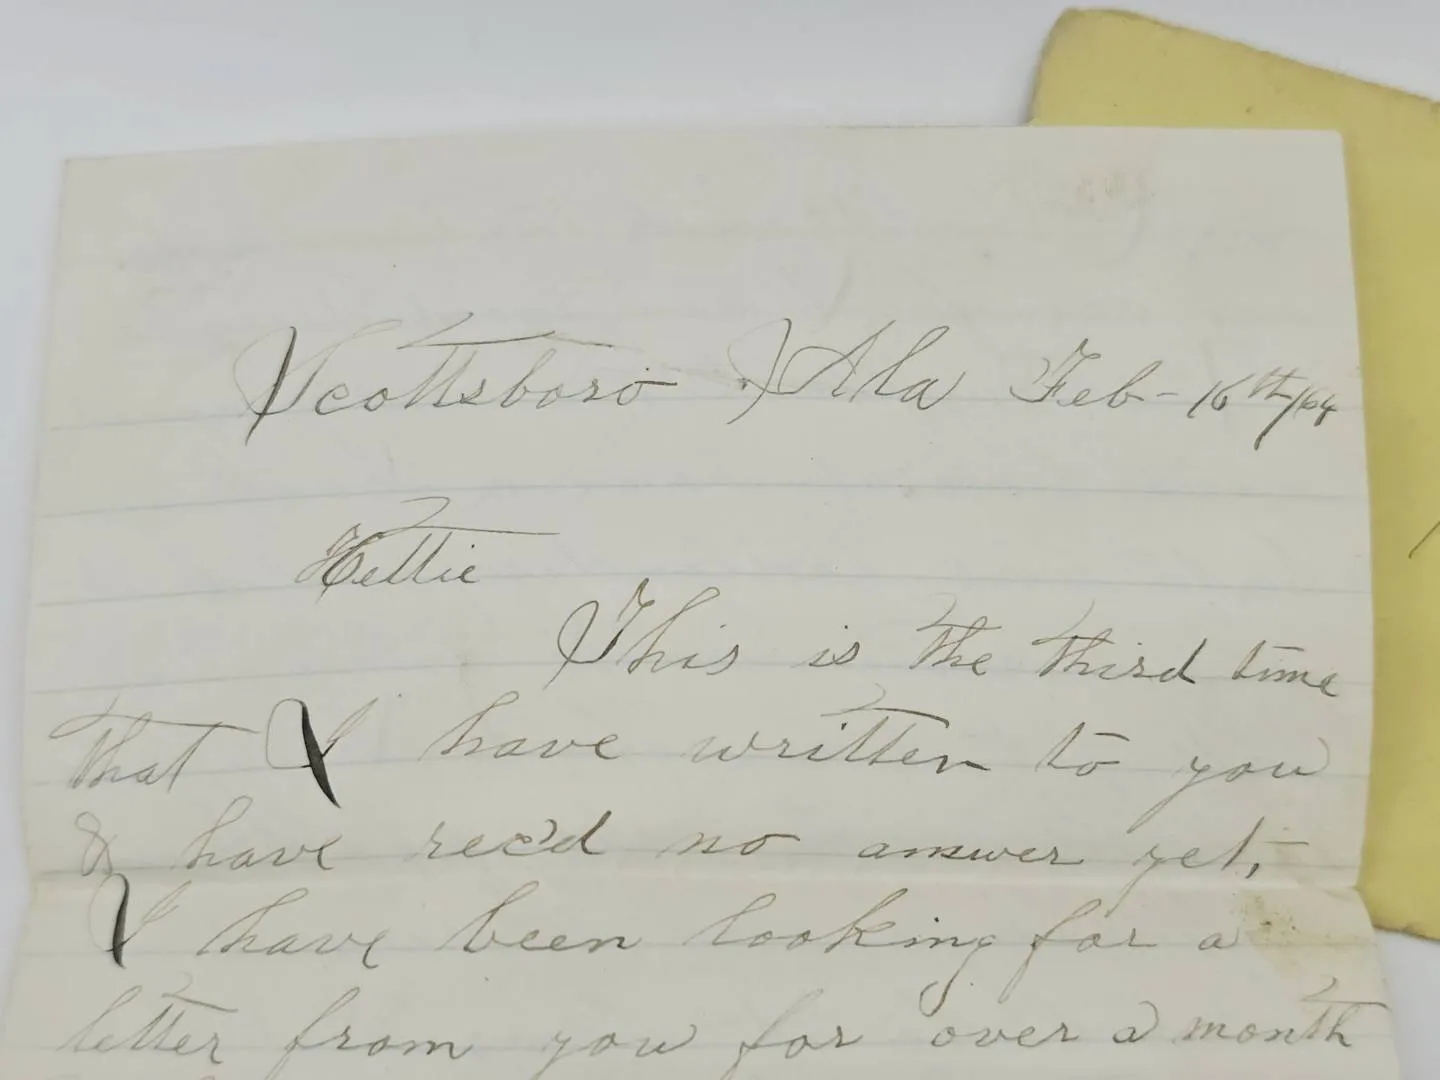 Scottsboro, Ala Feb-16th/64
Hettie
This is the third time
that I have written to you
& have rec'd no answer yet,
I have been looking for a
letter from you for over a month